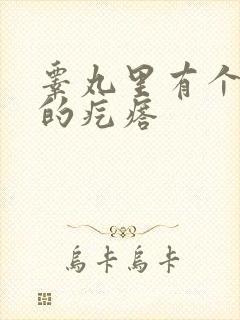 睾丸里有个
的疙瘩
烏卡烏卡